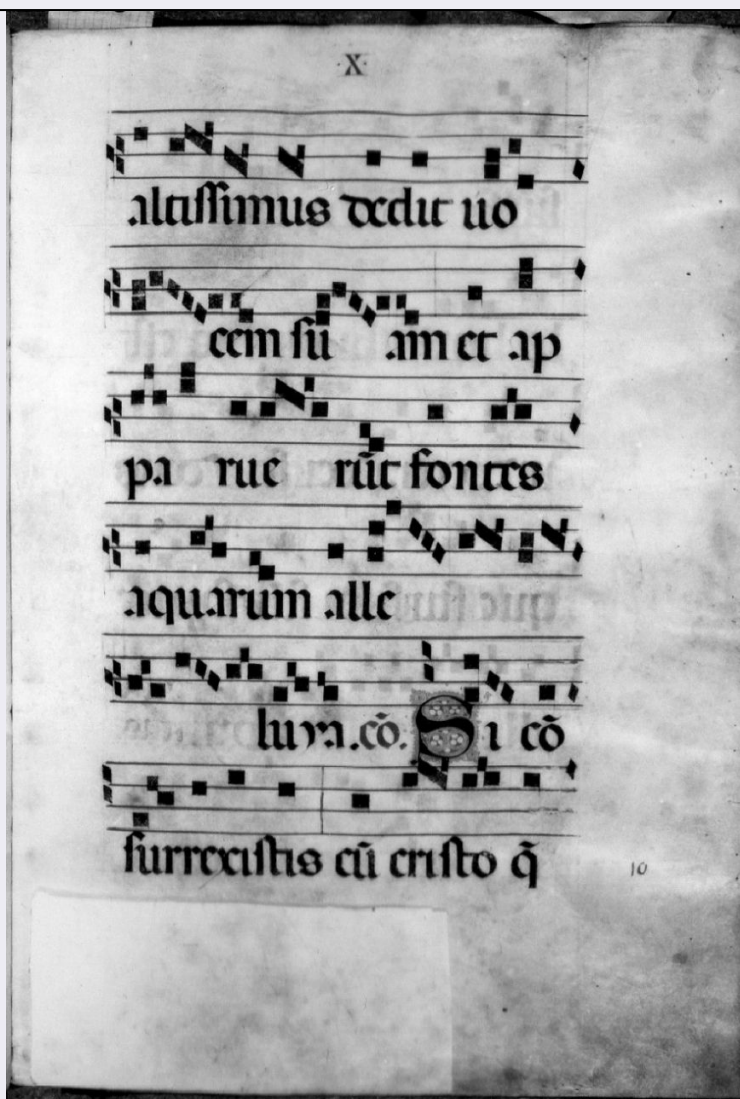 ·X·
altissimus dedit uo
cem su am et ap
pa rue rūt fontes
aquarum alle
luya. cō. Si cō
surrexistis cū cristo q̄
10